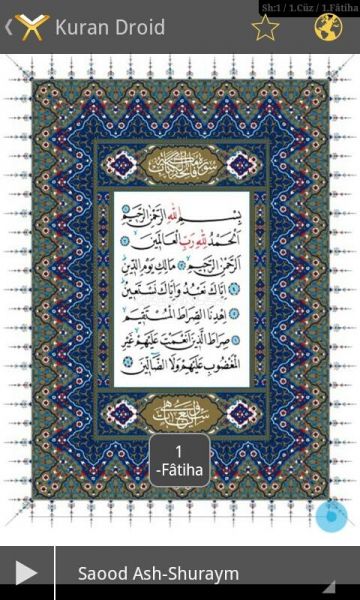 Sh:1 / 1.Cüz / 1.Fâtiha
Kuran Droid
بِسْمِ اللهِ الرَّحْمٰنِ الرَّحِيمِ
اَلْحَمْدُ لِلهِ رَبِّ الْعَالَمِينَ
اَلرَّحْمٰنِ الرَّحِيمِ مَالِكِ يَوْمِ الدِّينِ
اِيَّاكَ نَعْبُدُ وَاِيَّاكَ نَسْتَعِينُ
اِهْدِنَا الصِّرَاطَ الْمُسْتَقِيمَ
صِرَاطَ الَّذِينَ اَنْعَمْتَ عَلَيْهِمْ غَيْرِ
الْمَغْضُوبِ عَلَيْهِمْ وَلَا الضَّالِّينَ
1
-Fâtiha
Saood Ash-Shuraym